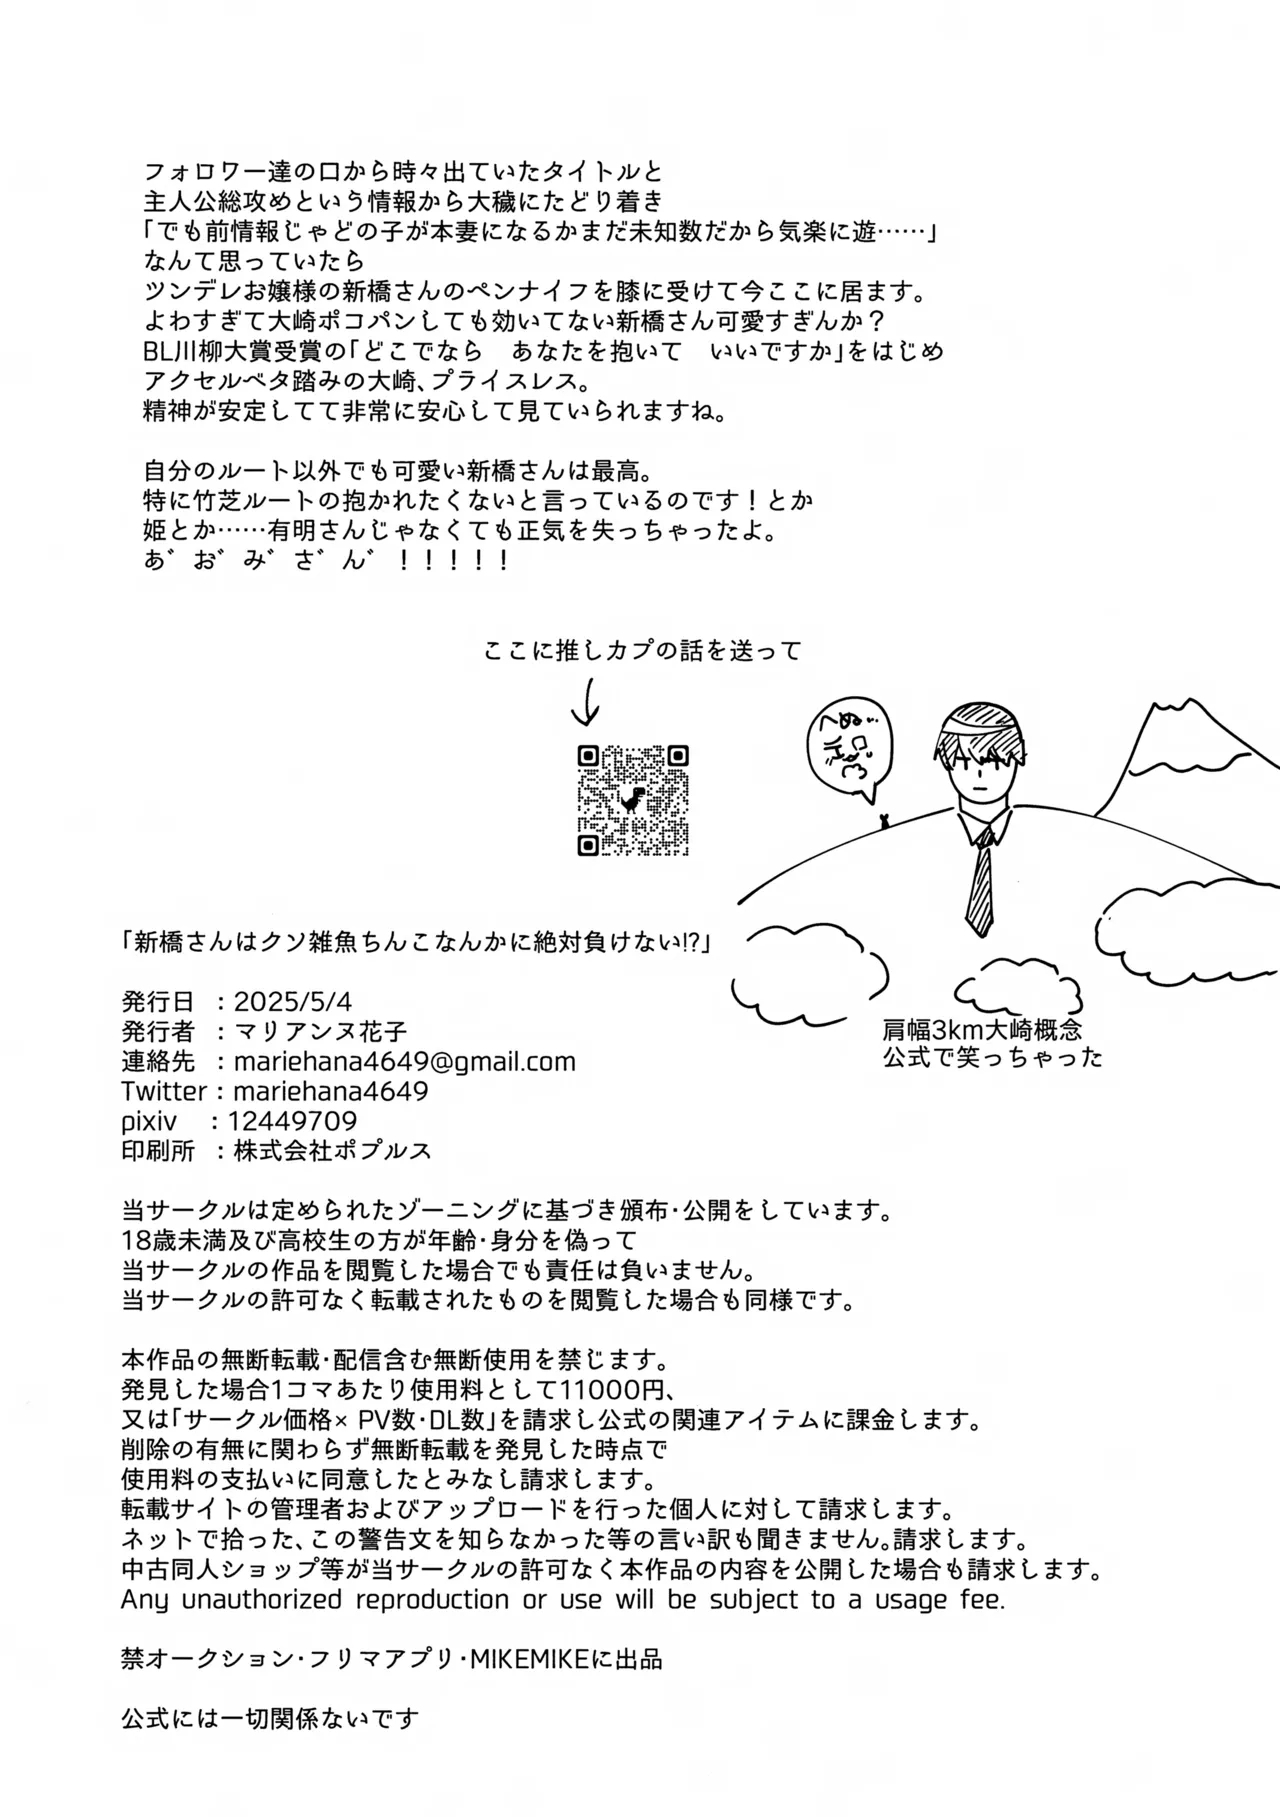 フォロワー達の口から時々出ていたタイトルと
主人公総攻めという情報から大穢にたどり着き
「でも前情報じゃどの子が本妻になるかまだ未知数だから気楽に遊……」
なんて思っていたら
ツンデレお嬢様の新橋さんのペンナイフを膝に受けて今ここに居ます。
よわすぎて大崎ポコパンしても効いてない新橋さん可愛すぎんか？
BL川柳大賞受賞の「どこでなら　あなたを抱いて　いいですか」をはじめ
アクセルベタ踏みの大崎、プライスレス。
精神が安定してて非常に安心して見ていられますね。
自分のルート以外でも可愛い新橋さんは最高。
特に竹芝ルートの抱かれたくないと言っているのです！とか
姫とか……有明さんじゃなくても正気を失っちゃったよ。
あ゛お゛み゛さ゛ん゛！！！！！
ここに推しカプの話を送って
「新橋さんはクソ雑魚ちんこなんかに絶対負けない!?」
発行日　：2025/5/4
発行者　：マリアンヌ花子
連絡先　：mariehana4649@gmail.com
Twitter：mariehana4649
pixiv　：12449709
印刷所　：株式会社ポプルス
肩幅3km大崎概念
公式で笑っちゃった
当サークルは定められたゾーニングに基づき頒布・公開をしています。
18歳未満及び高校生の方が年齢・身分を偽って
当サークルの作品を閲覧した場合でも責任は負いません。
当サークルの許可なく転載されたものを閲覧した場合も同様です。
本作品の無断転載・配信含む無断使用を禁じます。
発見した場合1コマあたり使用料として11000円、
又は「サークル価格× PV数・DL数」を請求し公式の関連アイテムに課金します。
削除の有無に関わらず無断転載を発見した時点で
使用料の支払いに同意したとみなし請求します。
転載サイトの管理者およびアップロードを行った個人に対して請求します。
ネットで拾った、この警告文を知らなかった等の言い訳も聞きません。請求します。
中古同人ショップ等が当サークルの許可なく本作品の内容を公開した場合も請求します。
Any unauthorized reproduction or use will be subject to a usage fee.
禁オークション・フリマアプリ・MIKEMIKEに出品
公式には一切関係ないです